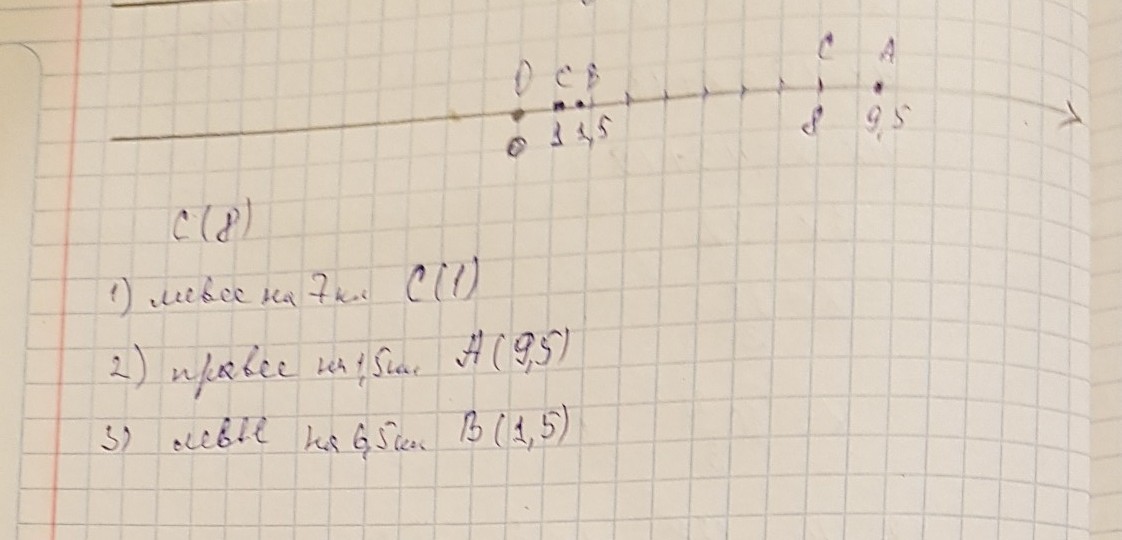 O C B C A
0 1 1,5 8 9,5
C(8)
1) левее на 7кл C(1)
2) правее на 1,5кл. A(9,5)
3) левее на 6,5кл B(1,5)